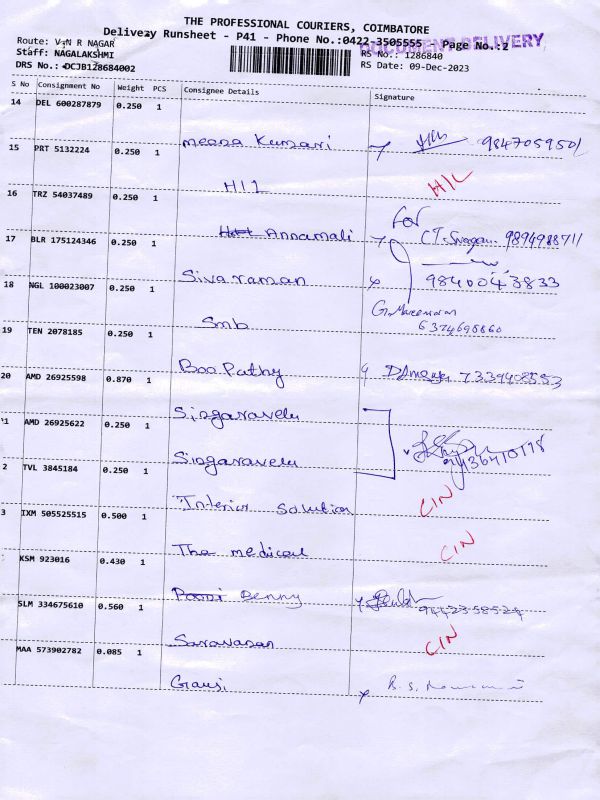 THE PROFESSIONAL COURIERS, COIMBATORE
Delivery Runsheet - P41 - Phone No.:0422-3505555 Page No.:2
DOCUMENT DELIVERY
Route: V N R NAGAR
RS No.: 1286840
Staff: NAGALAKSHMI
RS Date: 09-Dec-2023
DRS No.: DCJB128684002
S No Consignment No Weight PCS Consignee Details Signature
14 DEL 600287879 0.250 1
meena Kumari 9847059501
15 PRT 5132224 0.250 1
H11 H/L
16 TRZ 54037489 0.250 1
Annamali For 9894988711
17 BLR 175124346 0.250 1
Sivaraman 9840043833
18 NGL 100023007 0.250 1
Smb 6374696660
19 TEN 2078185 0.250 1
Boopathy 7339408553
20 AMD 26925598 0.870 1
Singaravelu
21 AMD 26925622 0.250 1
Singaravelu
2 TVL 3845184 0.250 1
Interior Solution CIN
3 IXM 505525515 0.500 1
The medical CIN
KSM 923016 0.430 1
Denny
SLM 334675610 0.560 1
Saravanan CIN
MAA 573902782 0.085 1
Gausi